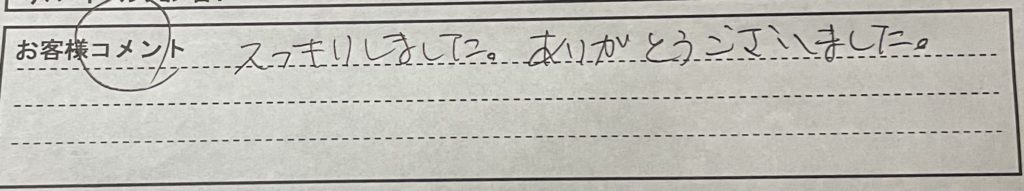 お客様コメント スッキリしました。ありがとうございました。